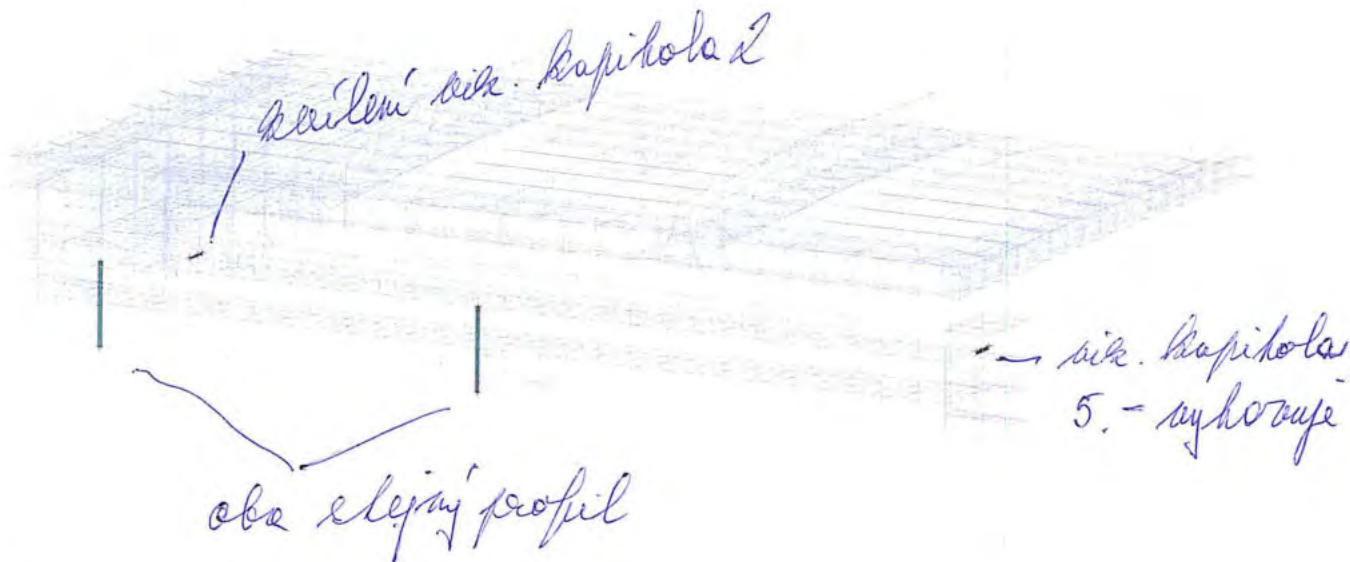 zesílení viz. kapitola 2
viz. kapitola
5. - vyhovuje
oba stejný profil